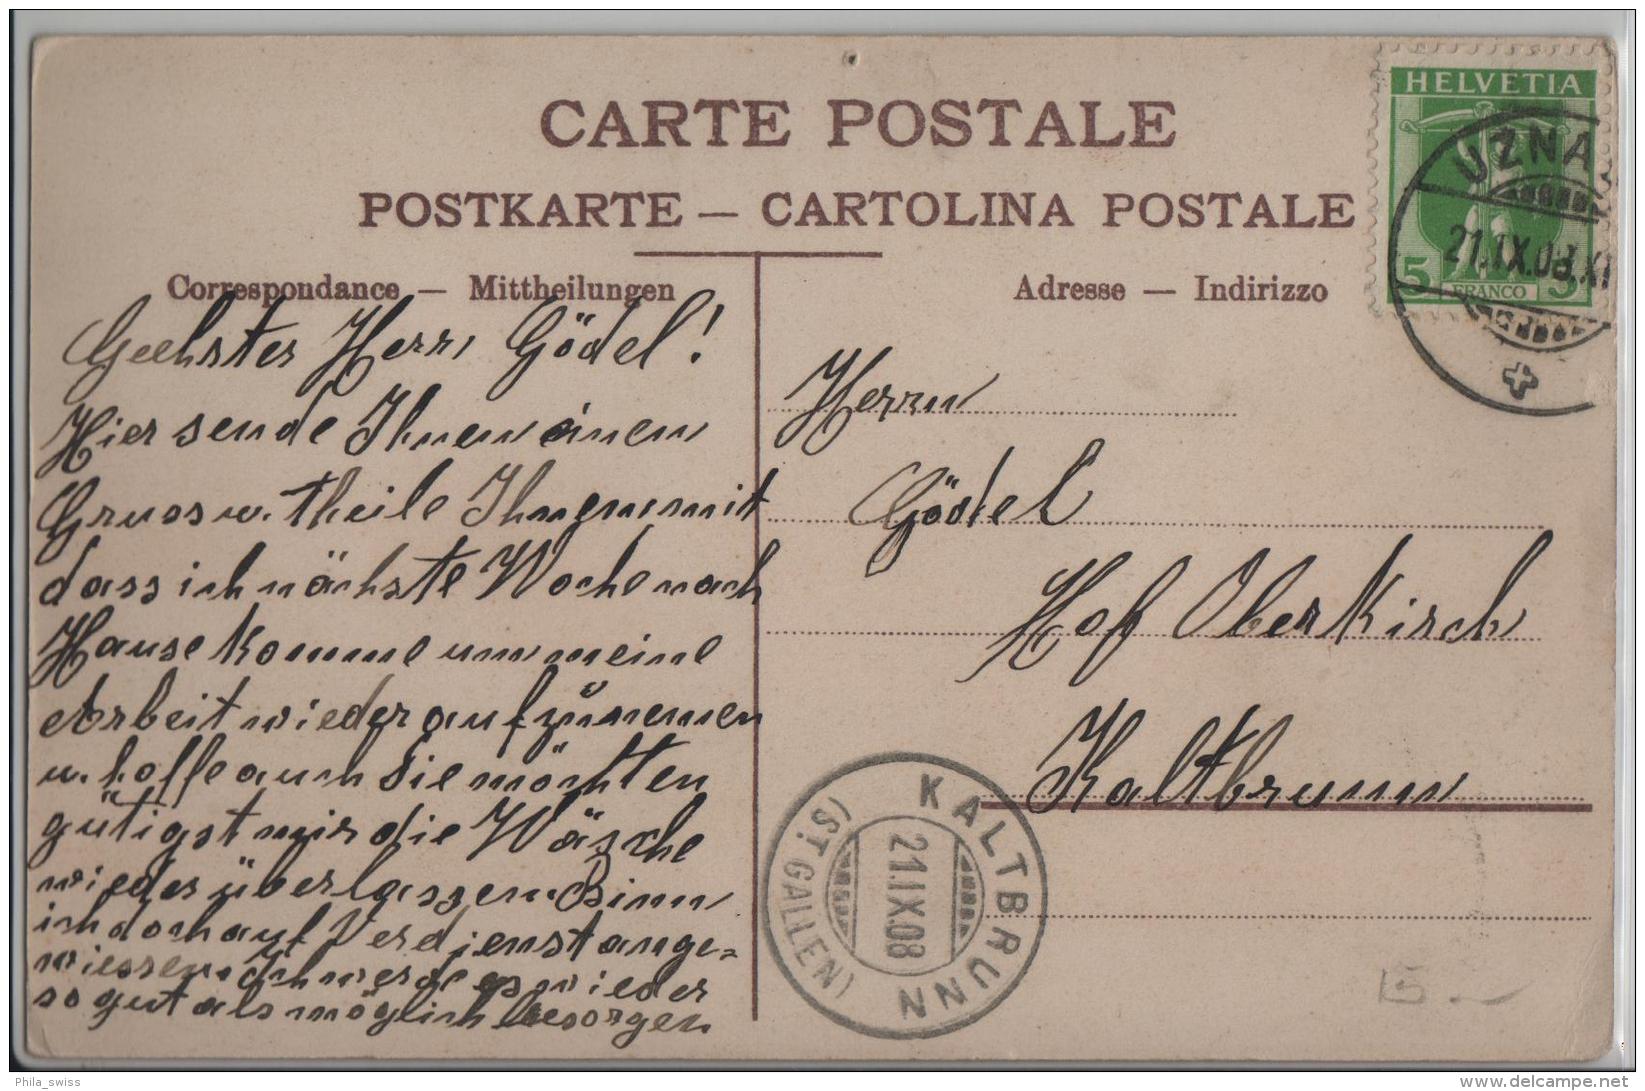 CARTE POSTALE
POSTKARTE — CARTOLINA POSTALE
Correspondance — Mittheilungen
Adresse — Indirizzo
HELVETIA
5 FRANCO 5
UZNA
21.IX.08.XI
Geehrter Herrn Gödel!
Hier sende Ihnen einen
Gruss u. theile Ihnen mit
dass ich nächste Woche nach
Hause komme um meine
Arbeit wieder aufzunemen
u. hoffe auch Sie möchten
gütigst mir die Wäsche
wieder überlassen. Binn
ich doch auf Verdienst ange=
wiessen. Ich werde es wieder
so gut als möglich besorgen
Herrn
Gödel
Hof Oberkirch
Kaltbrunn
KALTBRUNN
21.IX.08
(ST. GALLEN)
15.-
Phila_swiss
delcampe.net